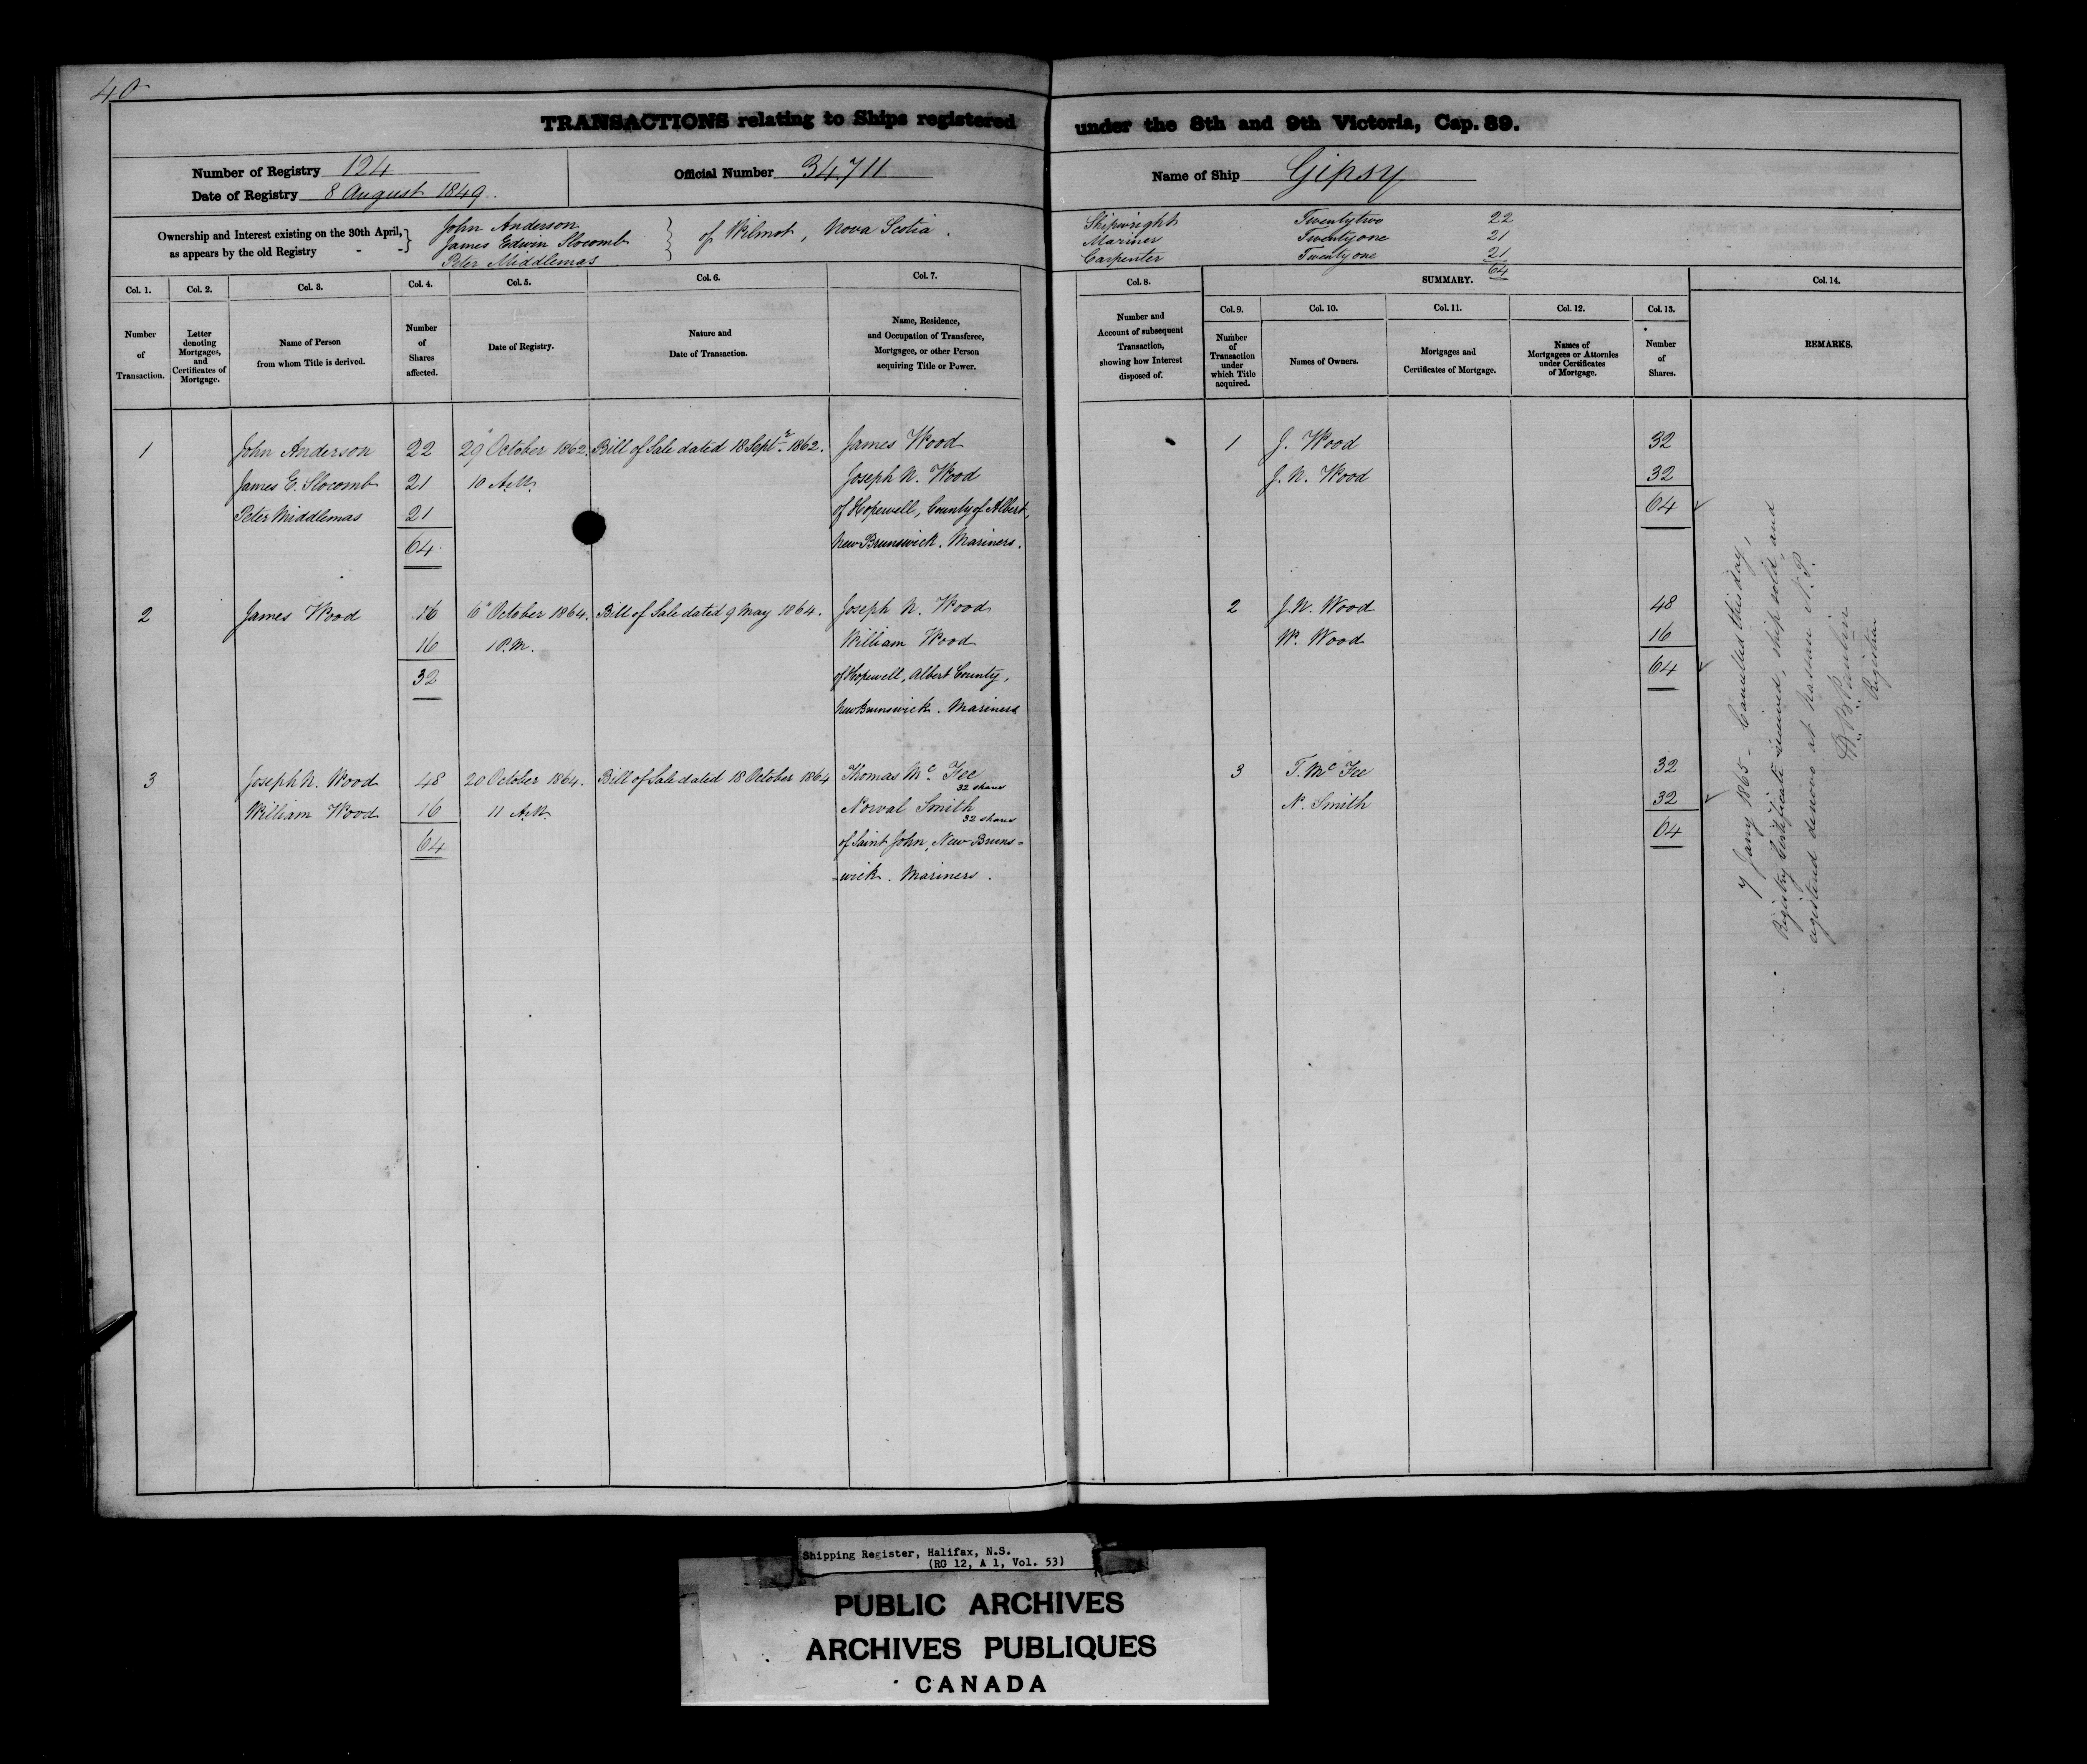 40
TRANSACTIONS relating to Ships registered under the 8th and 9th Victoria, Cap. 89.
Number of Registry 124
Date of Registry 8 August 1849.
Official Number 34,711
Name of Ship Gipsy
Ownership and Interest existing on the 30th April, as appears by the old Registry - -
John Anderson
James Edwin Slocomb
Peter Middlemas
of Wilmot, Nova Scotia.
Shipwright Twentytwo 22
Mariner Twentyone 21
Carpenter Twentyone 21
64
Col. 1. Number of Transaction.
Col. 2. Letter denoting Mortgages, and Certificates of Mortgage.
Col. 3. Name of Person from whom Title is derived.
Col. 4. Number of Shares affected.
Col. 5. Date of Registry.
Col. 6. Nature and Date of Transaction.
Col. 7. Name, Residence, and Occupation of Transferee, Mortgagee, or other Person acquiring Title or Power.
Col. 8. Number and Account of subsequent Transaction, showing how Interest disposed of.
SUMMARY.
Col. 9. Number of Transaction under which Title acquired.
Col. 10. Names of Owners.
Col. 11. Mortgages and Certificates of Mortgage.
Col. 12. Names of Mortgagees or Attornies under Certificates of Mortgage.
Col. 13. Number of Shares.
Col. 14. REMARKS.
1 John Anderson 22 29" October 1862 Bill of Sale dated 18 Septr. 1862. James Wood 1 J. Wood 32
James E. Slocomb 21 10 A.M. Joseph N. Wood J. N. Wood 32
Peter Middlemas 21 of Hopewell, County of Albert, 64
64 New Brunswick. Mariners.
2 James Wood 16 6" October 1864. Bill of Sale dated 9 May 1864. Joseph N. Wood 2 J. N. Wood 48
16 1 P.M. William Wood W. Wood 16
32 of Hopewell, Albert County, 64
New Brunswick. Mariners
3 Joseph N. Wood 48 20 October 1864. Bill of Sale dated 18 October 1864 Thomas Mc. Fee 32 shares 3 T. Mc Fee 32
William Wood 16 11 A.M. Norval Smith 32 shares N. Smith 32
64 of Saint John, New Bruns= 64
=wick. Mariners.
7 Jany 1865 - Cancelled this day,
Registry Certificate received, ship sold, and
registered denovo at Nassau N.P.
Registrar
Shipping Register, Halifax, N.S.
(RG 12, A 1, Vol. 53)
PUBLIC ARCHIVES
ARCHIVES PUBLIQUES
CANADA